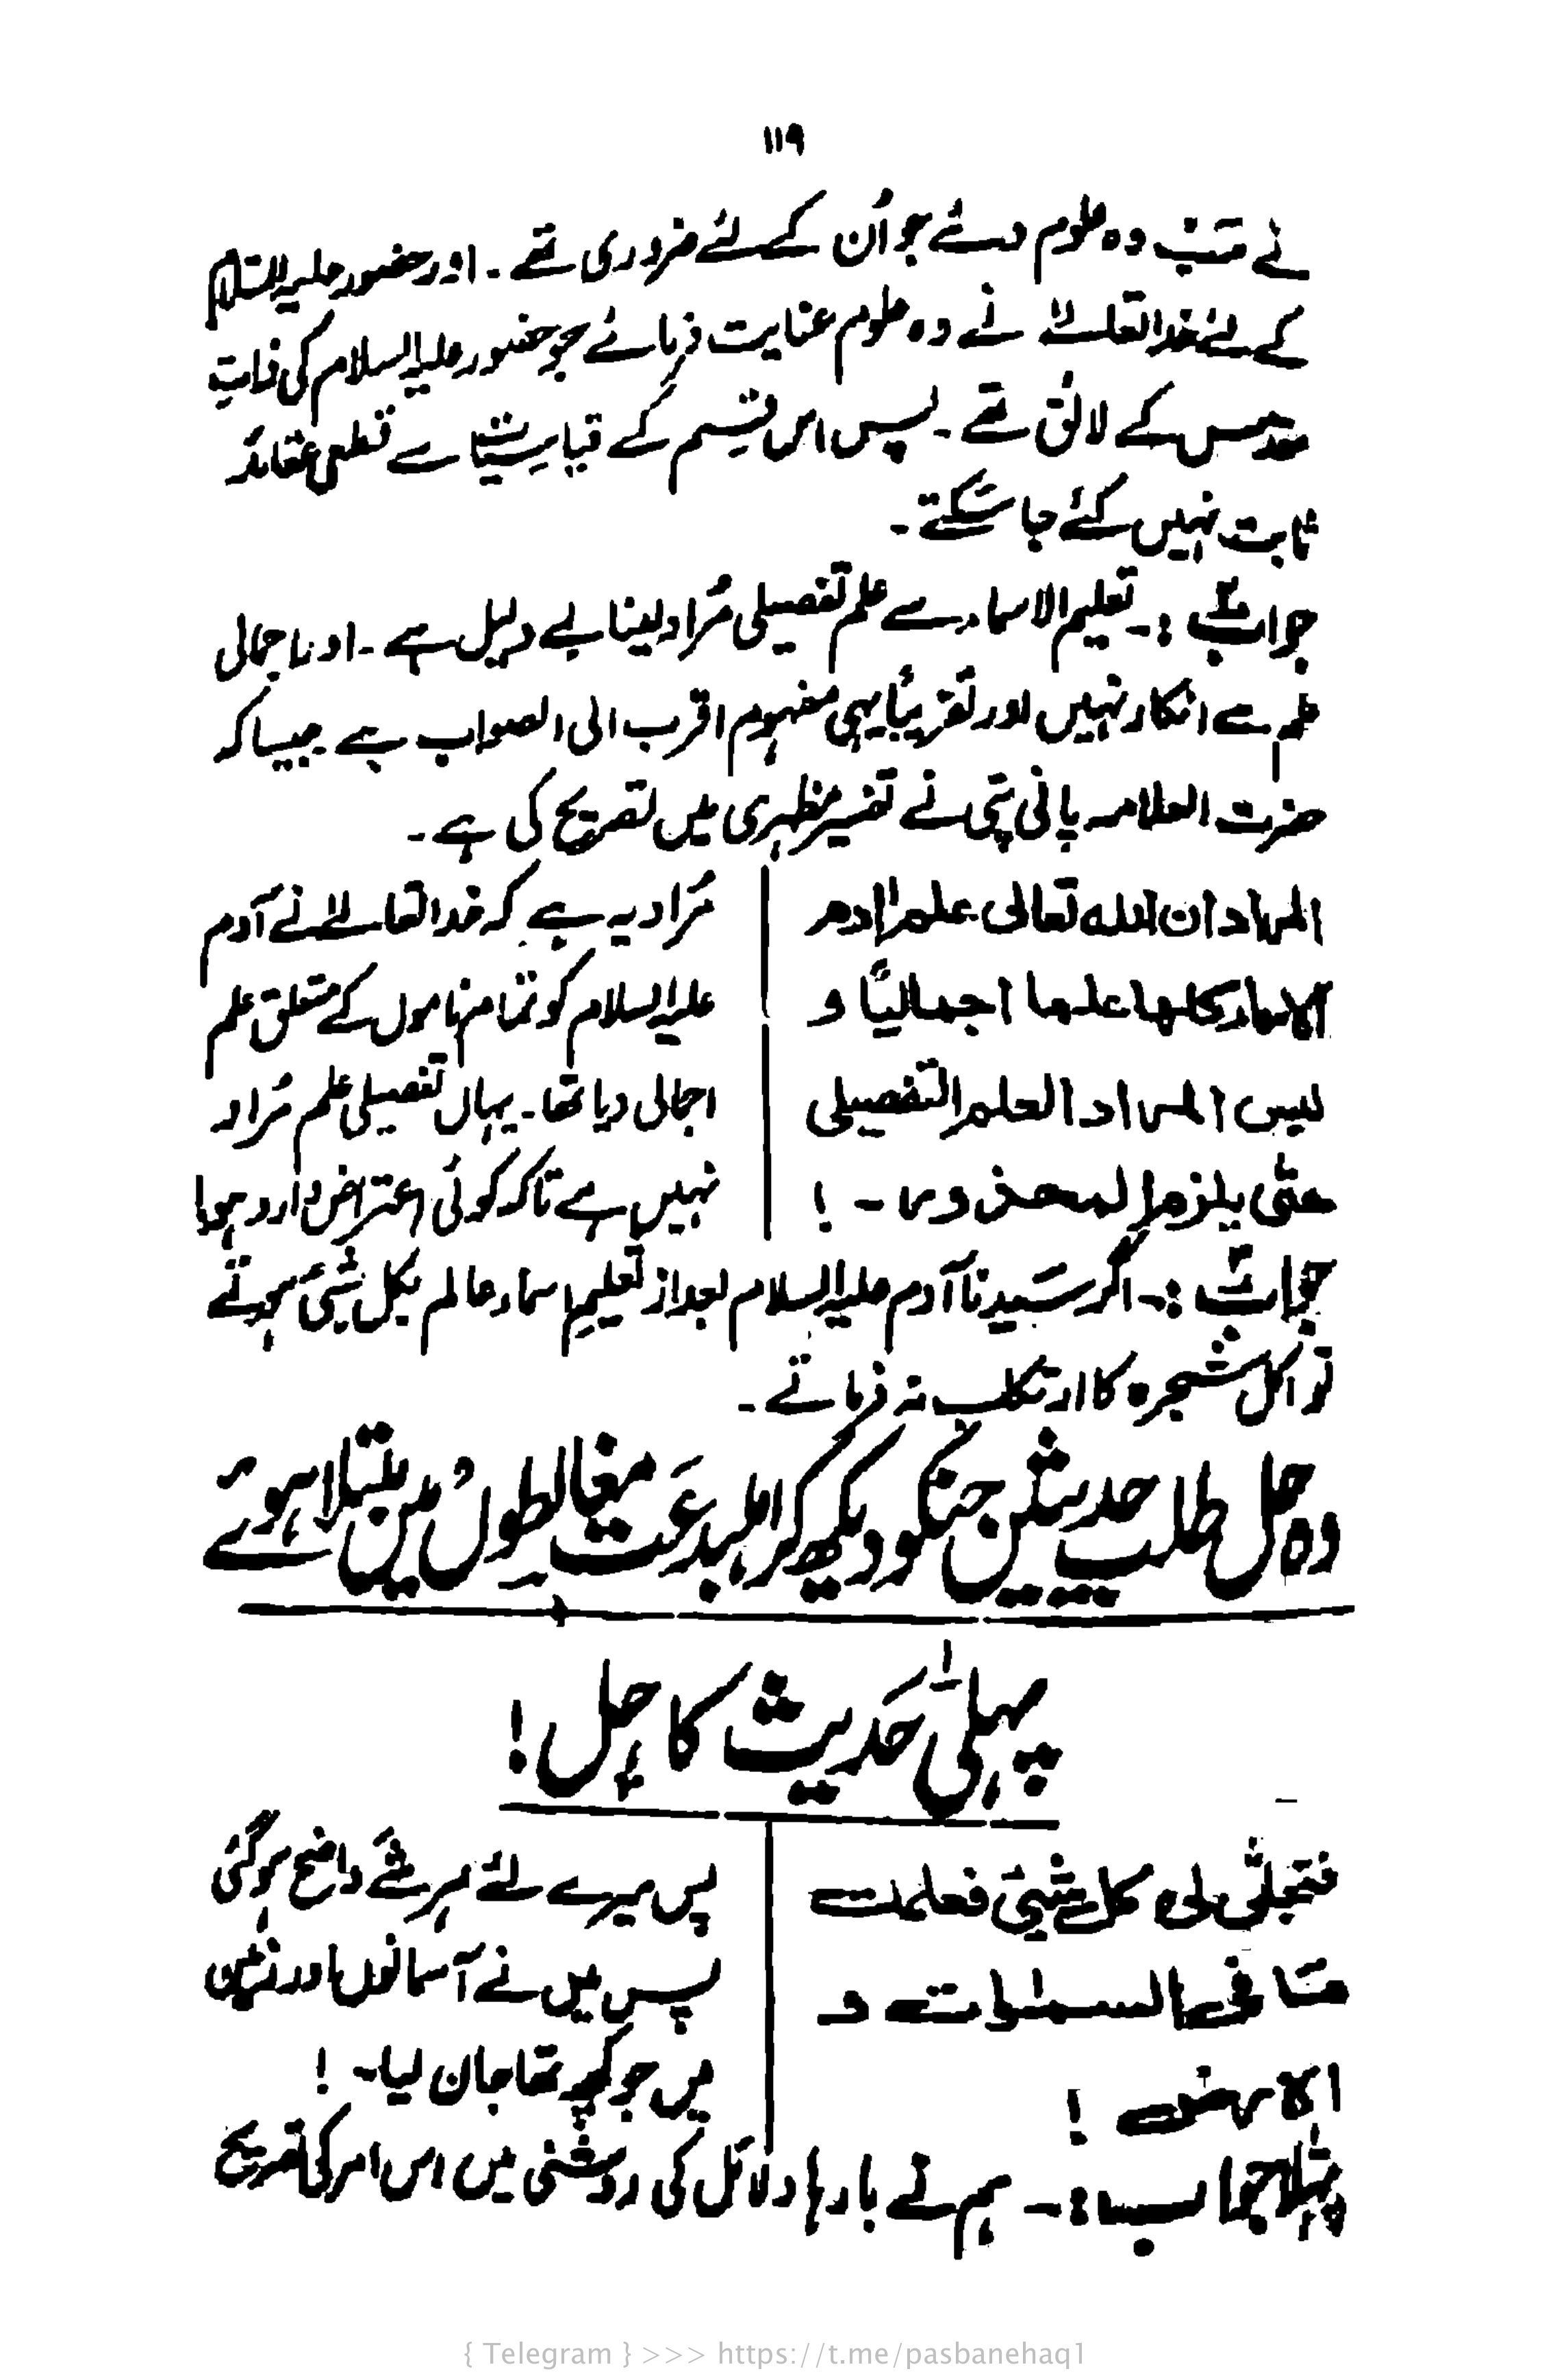 ۱۱۹
نے وہ علوم دیئے جو اُن کے لئے ضروری تھے ۔ اور حضور علیہ السلام
کے لئے خدا تعالےٰ نے وہ علوم عنایت فرمائے جو حضور علیہ السلام کی ذات
کے لائق تھے ۔ پس اس قسم کے قیاسیات سے قطعی عقائد
ثابت نہیں کئے جا سکتے ۔
جواب :۔ تعلیم الاسماء سے علم تفصیلی مُراد لینا بے دلیل ہے ۔ اجمالی
علم سے انکار نہیں اور تقریباً یہی مفہوم اقرب الی الصواب ہے جیسا کہ
حضرت العلامہ پانی پتی نے تفسیر مظہری میں تصریح کی ہے ۔
المراد ان الله تعالى علم ادم
الاسماء كلها علما اجماليًا و
ليس المراد العلم التفصيلى
حتى يلزم المحذور ۔ !
مُراد یہ ہے کہ خدا تعالےٰ نے آدم
علیہ السلام کو تمام ناموں کے متعلق علم
اجمالی دیا تھا ۔ یہاں تفصیلی علم مُراد
نہیں ہے تاکہ کوئی اعتراض وارد ہو ا
جواب :۔ اگر سیدنا آدم علیہ السلام بعد از تعلیم اسماء عالم بکل شیٔ ہوتے
تو اکل شجرہ کا ارتکاب نہ فرماتے ۔
وہ حل طلب حدیثیں جنکو دیکھ کر اہل بدعت مغالطوں میں مبتلا ہوئے
پہلی حدیث کا حل !
فتجلّٰى لى كل شيئ فعلمت
ما فى السمٰوات و
الارض !
پس میرے لئے ہر شے واضح ہو گئی
پس میں نے آسمانوں اور زمین
میں جو کچھ تھا جان لیا۔ !
پہلا جواب :۔ ہم نے بارہا دلائل کی روشنی میں اس امر کی تصریح
{ Telegram } >>> https://t.me/pasbanehaq1